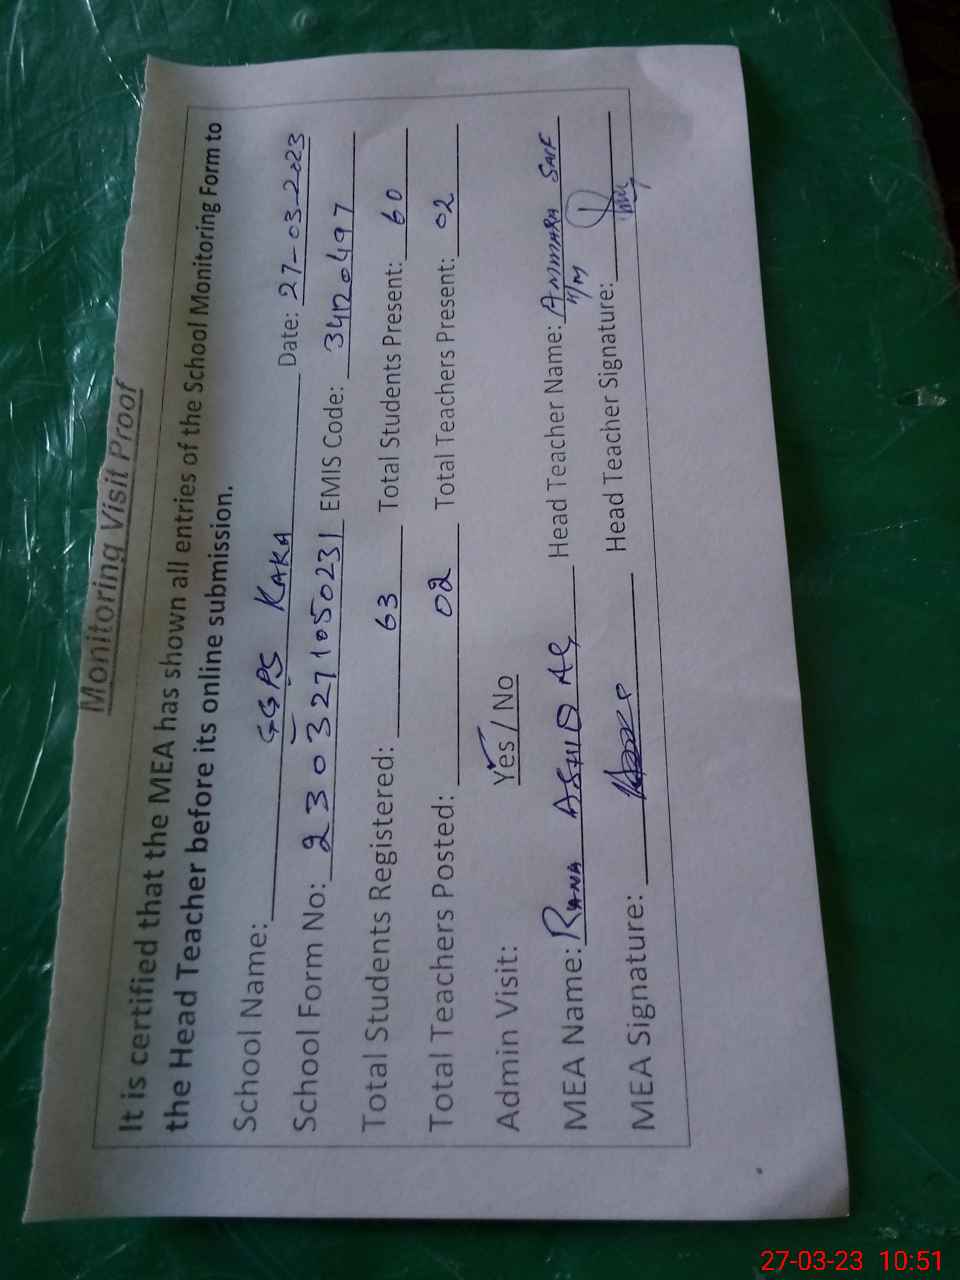 Monitoring Visit Proof
It is certified that the MEA has shown all entries of the School Monitoring Form to
the Head Teacher before its online submission.
School Name: GGPS KAKA Date: 27-03-2023
School Form No: 2303271050231 EMIS Code: 34120497
Total Students Registered: 63 Total Students Present: 60
Total Teachers Posted: 02 Total Teachers Present: 02
Admin Visit: Yes / No
MEA Name: RANA Head Teacher Name: AMMARA SAIF
MEA Signature: Head Teacher Signature:
27-03-23 10:51